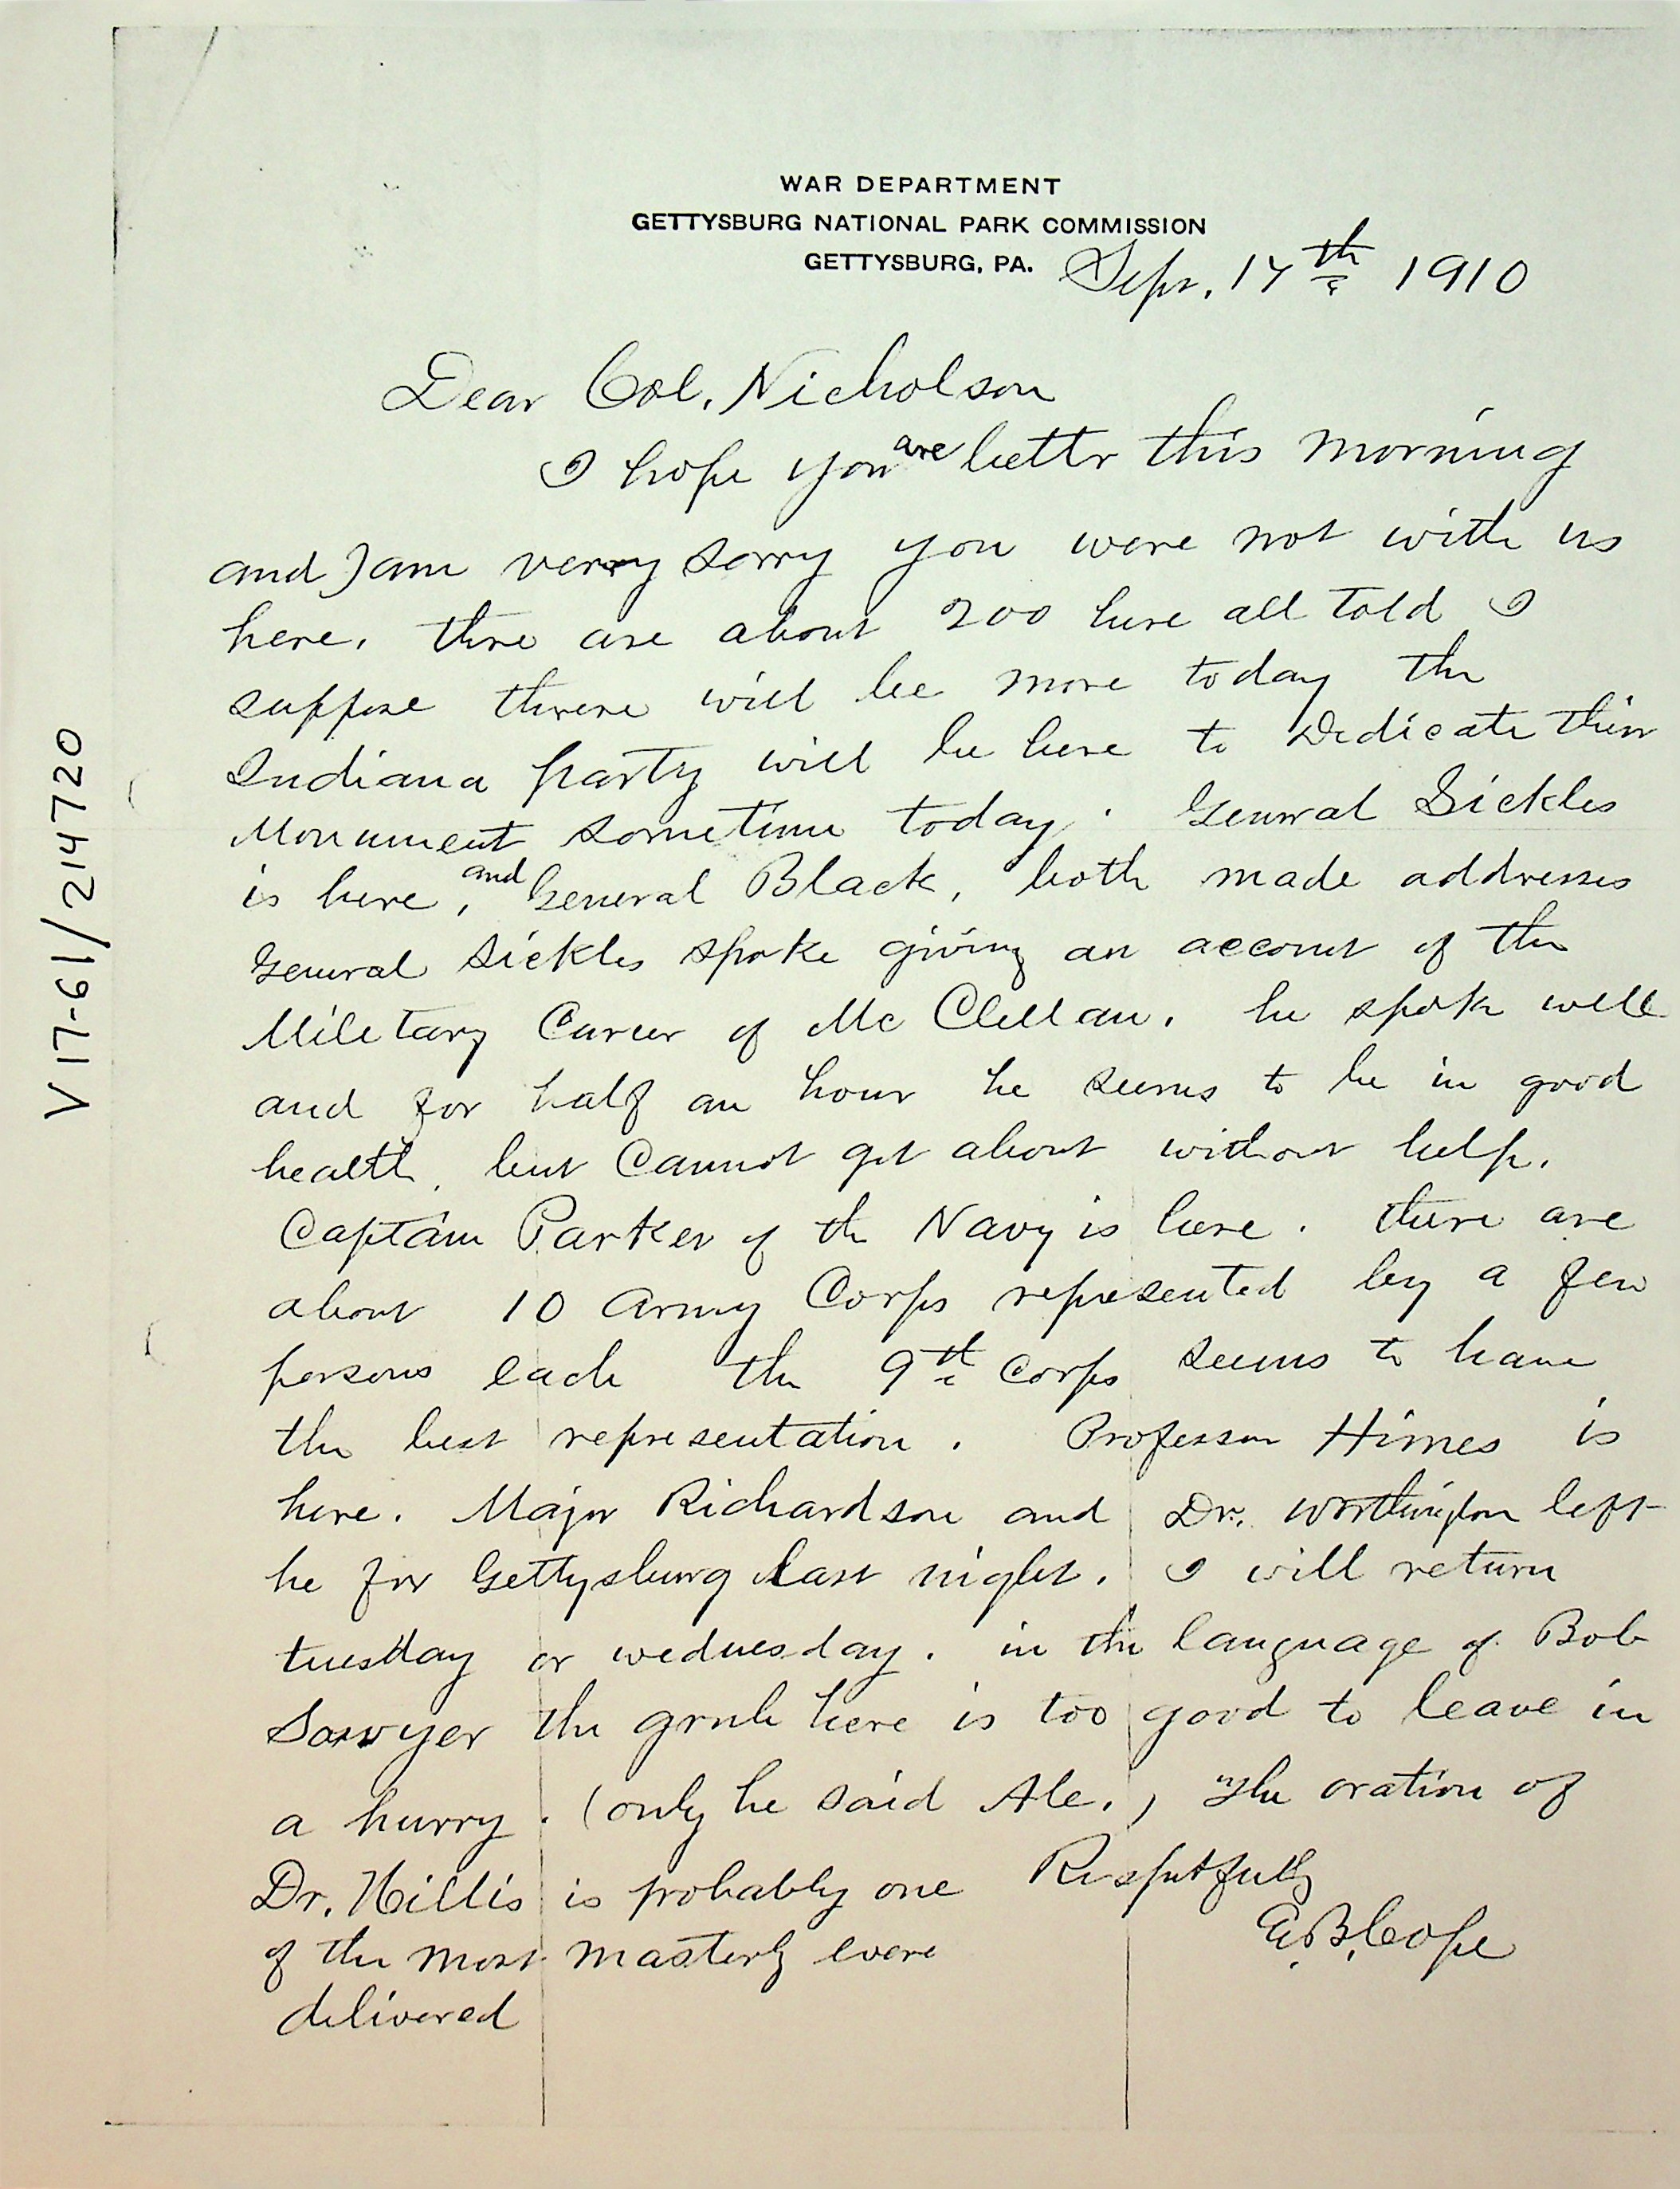 WAR DEPARTMENT
GETTYSBURG NATIONAL PARK COMMISSION
GETTYSBURG, PA. Sepr. 17th 1910
Dear Col. Nicholson
I hope you are better this morning
and I am verry sorry you were not with us
here. thre are about 200 here all told I
suppose threre will be more today the
Indiana party will be here to Dedicate thier
Monument sometime today. General Sickles
is here, and General Black, both made addresses
General Sickles spoke giving an account of the
Military Career of Mc Clellan. he spoke well
and for half an hour he seems to be in good
health, but Cannot get about without help.
Captain Parker of the Navy is here. there are
about 10 Army Corps represented by a few
persons each the 9th Corps seems to have
the best representation. Professor Himes is
here. Major Richardson and Dr. Worthington left
he for Gettysburg last night. I will return
tuesday or wednesday. in the language of Bob
Sawyer the grub here is too good to leave in
a hurry. (only he said Ale.) The oration of
Dr. Hillis is probably one
of the most masterly evere
delivered
Respetfully
E. B. Cope
V17-61/214720